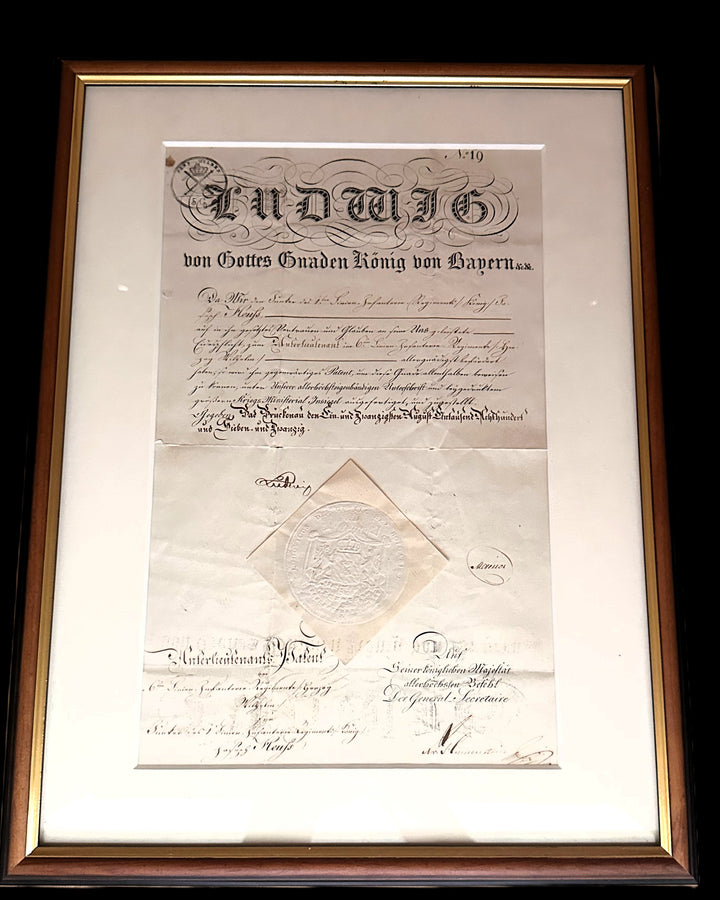 No 19
LUDWIG
von Gottes Gnaden König von Bayern &c. &c.
Da Wir den Junker des 1ten Linien-Infanterie-Regiments /: König :/ Jo-
seph Heuß
auch in Ansehung Vertrauen und Glauben an seine Uns geleistete
zum Unterlieutenant im 6ten Linien-Infanterie-Regimente /: Her-
zog Wilhelm :/ allergnädigst befördert
haben, so wird ihm gegenwärtiges Patent, um diese Gnade allenthalben beweisen
zu können, unter Unserer allerhöchsteigenhändigen Unterschrift und beygedrucktem
größeren Kriegs-Ministerial-Insiegel ausgefertiget, und zugestellt.
Gegeben Bad Brückenau den Ein und Zwanzigsten August Eintausend Achthundert
und Sieben und Zwanzig.
Ludwig
Unterlieutenants Patent
im
6ten Linien-Infanterie-Regimente /: Herzog
Wilhelm :/
für
Junker des 1ten Linien-Infanterie-Regiments /: König :/
Joseph Heuß
Auf
Seiner königlichen Majestät
allerhöchsten Befehl
Der General-Secretaire